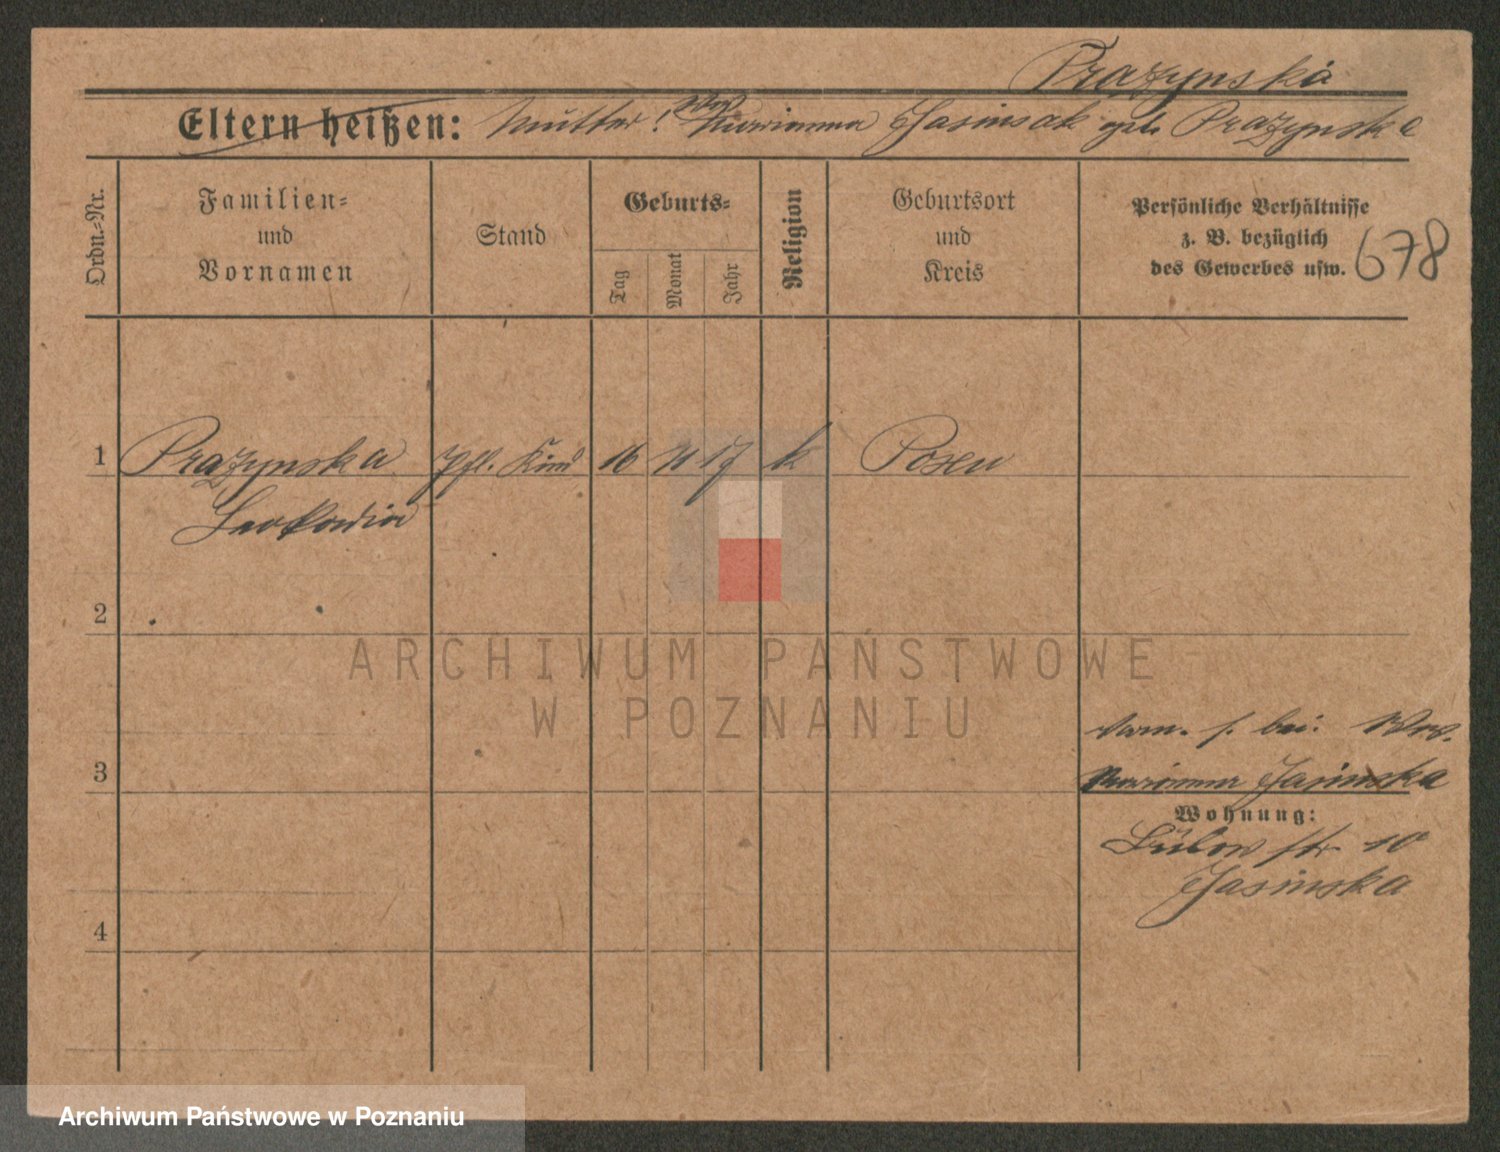 Prazynska
Eltern heißen: Mutter! Ww Marianna Jasinsak geb. Prazynska
Ordn.-Nr.
Familien-
und
Vornamen
Stand
Geburts-
Tag
Monat
Jahr
Religion
Geburtsort
und
Kreis
Persönliche Verhältnisse
z. B. bezüglich
des Gewerbes usw.
678
1 Prazynska Pfl. Kind 16 11 17 k Posen
Leokadia
2
3
4
bei Ww.
Marianna Jasinska
Wohnung:
Bülow str 10
Jasinska
ARCHIWUM PAŃSTWOWE
W POZNANIU
Archiwum Państwowe w Poznaniu